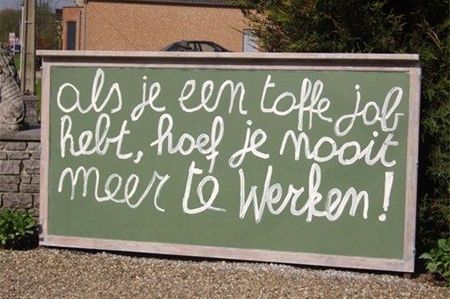 als je een toffe job
hebt, hoef je nooit
meer te werken!